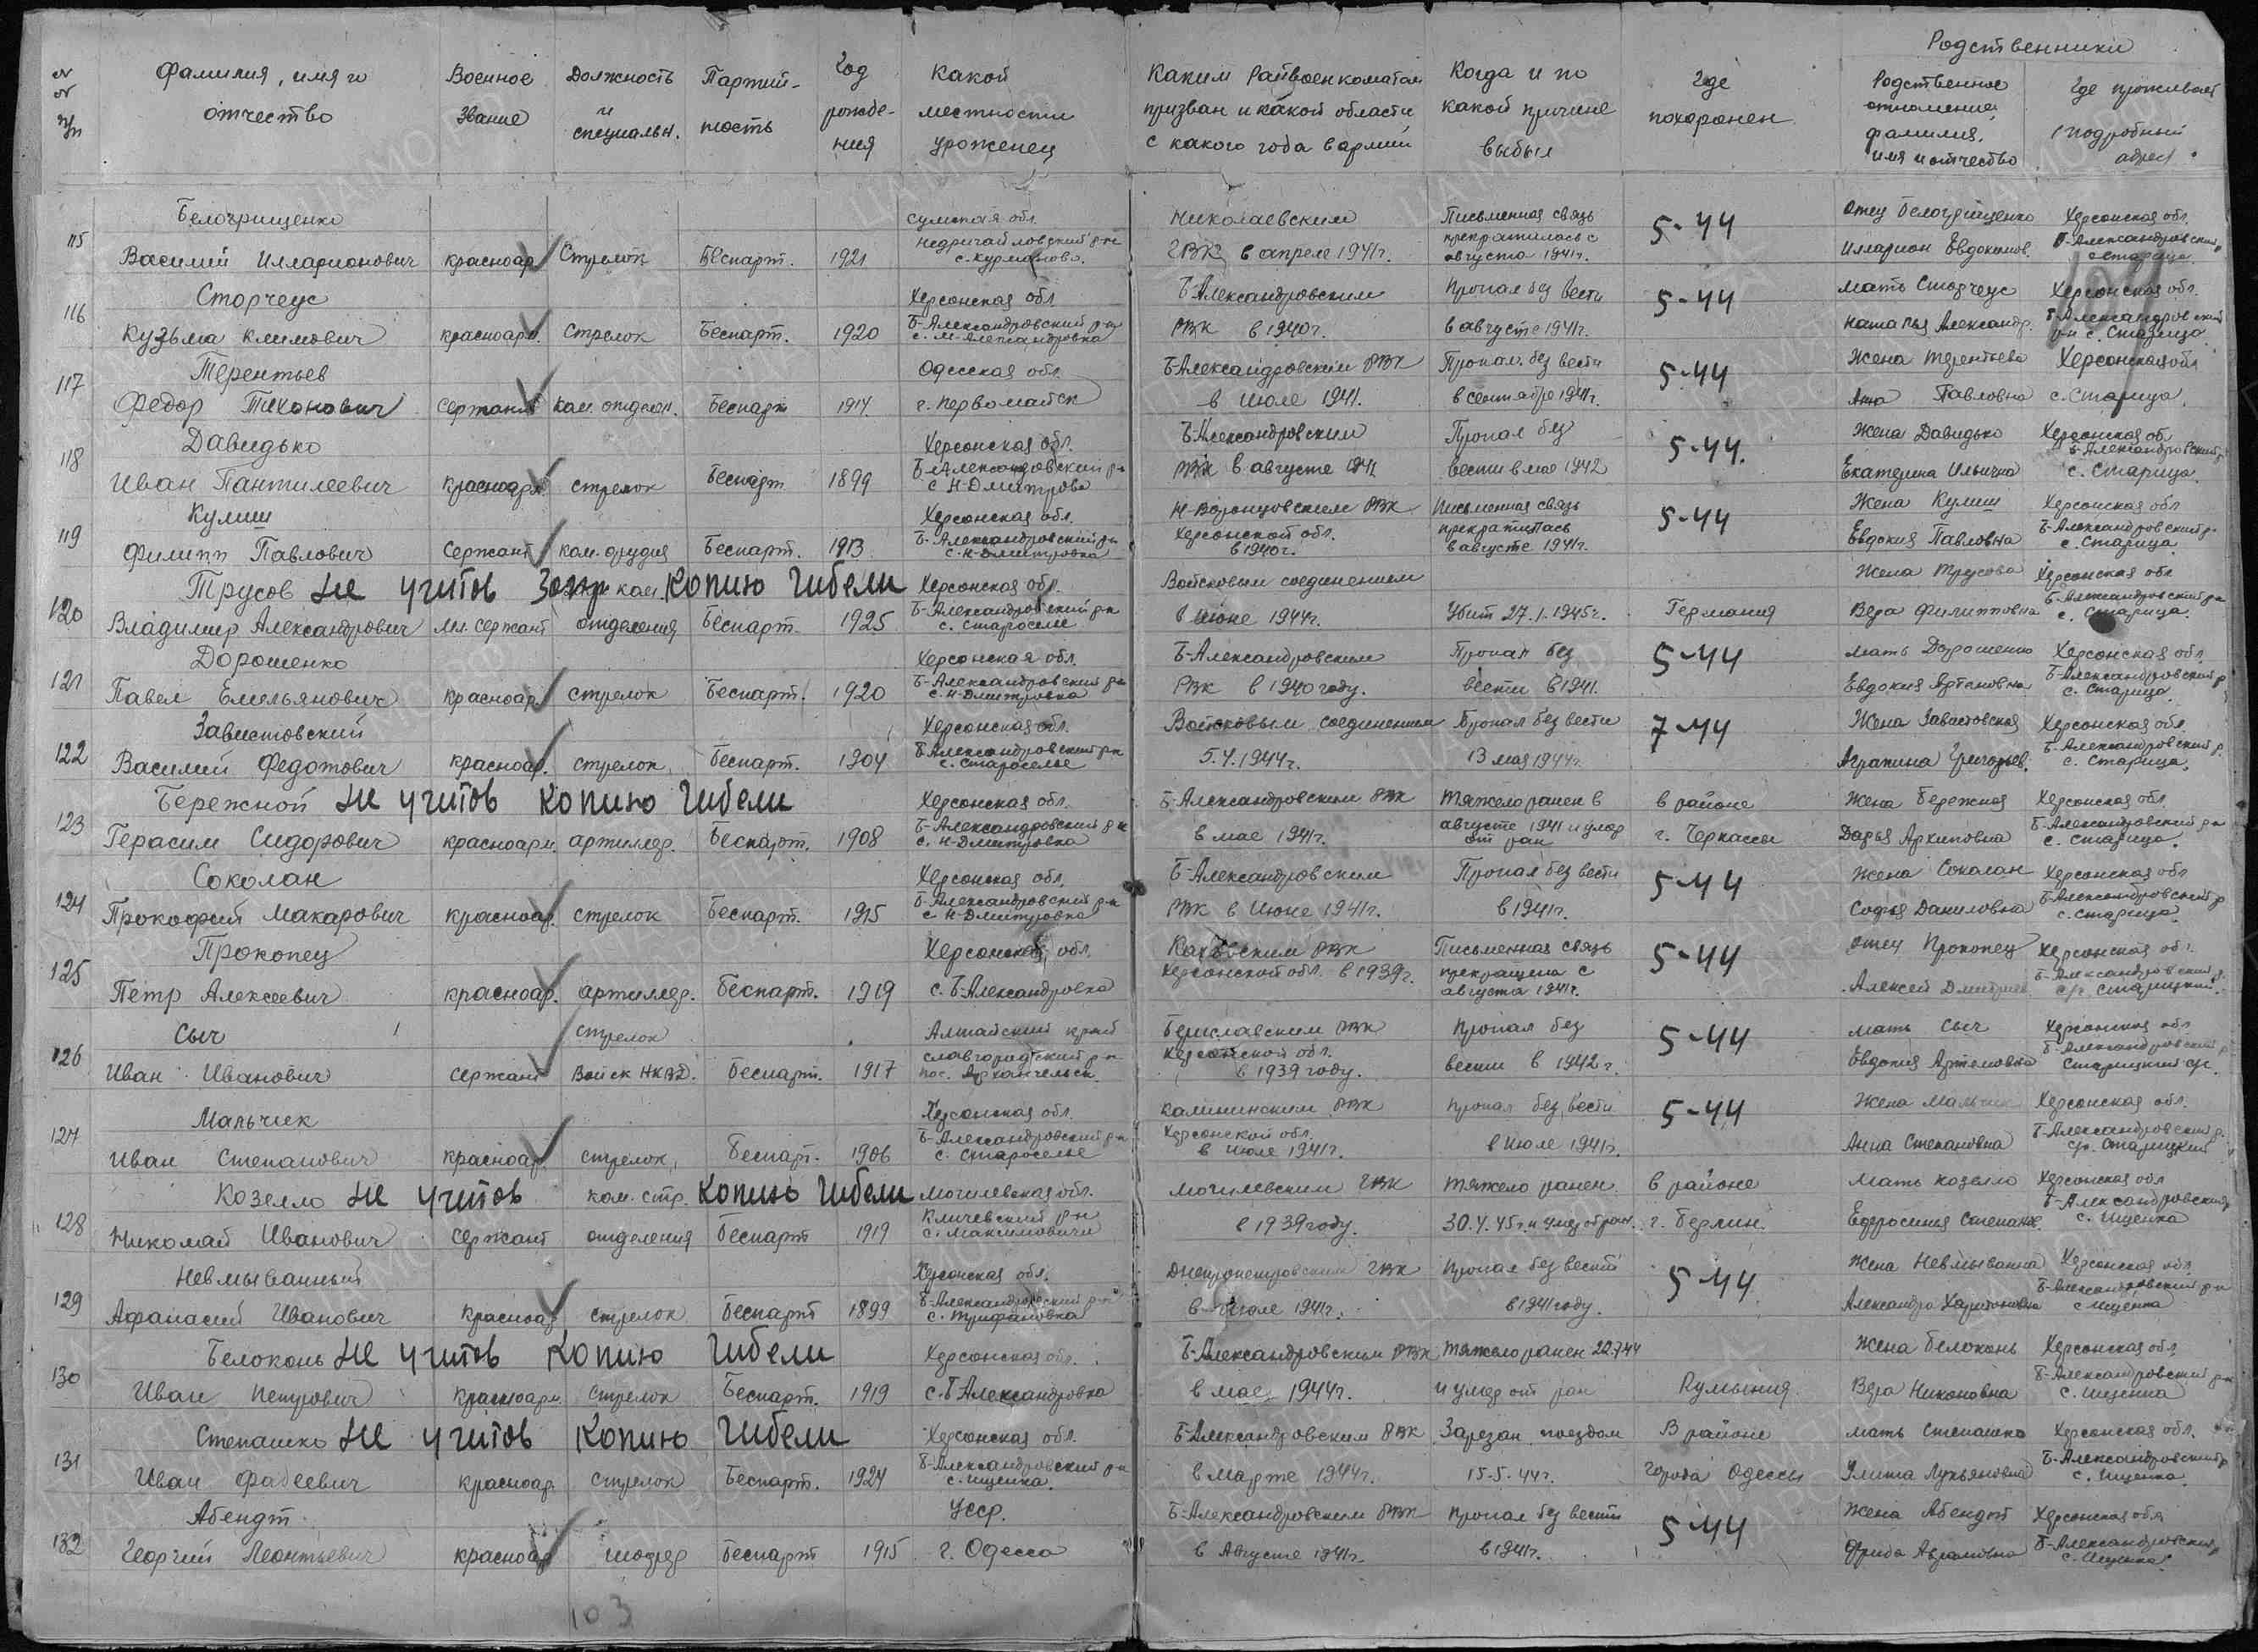 Родственники
№№ п/п Фамилия, имя и отчество Военное звание Должность и специальн. Партийность Год рождения Какой местности уроженец Каким Райвоенкоматом призван и какой области с какого года в армии Когда и по какой причине выбыл Где похоронен Родственное отношение, фамилия, имя и отчество Где проживает (подробный адрес.
115 Белогрищенко Сумская обл. Николаевским Письменная связь 5-44 Отец Белогрищенко Херсонская обл.
Василий Илларионович красноар. Стрелок Беспарт. 1921 с. Курманово. ГВК в апреле 1941г. прекратилась с августа 1941г. Илларион Евдокимов. Б-Александровский с. Старица.
116 Сторчеус Херсонская обл. Б-Александровским Пропал без вести 5-44 Мать Сторчеус Херсонская обл.
Кузьма Климович красноарм. стрелок Беспарт. 1920 Б-Александровский р-н с. М-Александровка РВК в 1940г. в августе 1941г. Наталья Александр. Б-Александровский р-н с. Старица.
117 Терентьев Одесская обл. Б-Александровским РВК Пропал без вести 5-44 Жена Терентьева Херсонская обл.
Федор Тихонович Сержант ком. отделен. Беспарт 1914 г. Первомайск в июле 1941. в сентябре 1941г. Анна Павловна с. Старица.
118 Давидько Херсонская обл. Б-Александровским Пропал без 5-44. Жена Давидько Херсонская об.
Иван Пантилеевич красноарм стрелок Беспарт 1899 Б-Александровский р-н с Н-Дмитрова РВК в августе 1941 вести в мае 1942 Екатерина Ильична Б-Александровский р с. Старица.
119 Кулиш Херсонская обл. Н-Воронцовским РВК Письменная связь 5-44 Жена Кулиш Херсонская обл
Филипп Павлович Сержант ком. орудия Беспарт. 1913 Б-Александровский р-н с. Н-Дмитровка Херсонской обл. в 1940г. прекратилась в августе 1941г. Евдокия Павловна Б-Александровский р. с. Старица
120 Трусов не учитов ком. копию гибели Херсонская обл. Войсковым соединением Жена Трусова Херсонская обл
Владимир Александрович Мл. сержант отделения Беспарт. 1925 Б-Александровский р-н с. Староселье в июне 1944г. Убит 27.1.1945г. Германия Вера Филипповна Б-Александровский р-н с. Старица.
121 Дорошенко Херсонская обл. Б-Александровским Пропал без 5-44 мать Дорошенко Херсонская обл.
Павел Емельянович красноар. стрелок Беспарт. 1920 Б-Александровский р-н с. Н-Дмитровка РВК в 1940 году. вести в 1941. Евдокия Б-Александровский р с. Старица
122 Завистовский Херсонская обл. Войсковым соединением Пропал без вести 7-44 Жена Завистовская Херсонская обл
Василий Федотович красноар. стрелок Беспарт. 1904 Б-Александровский р-н с. Староселье 5.4.1944г. 13 мая 1944г. Агрипина Григорьев. Б-Александровский р. с. Старица.
123 Бережной не учитов копию гибели Херсонская обл. Б-Александровским РВК Тяжело ранен в в районе Жена Бережная Херсонская обл.
Герасим Сидорович красноарм. артиллер. Беспарт. 1908 Б-Александровский р-н с. Н-Дмитровка в мае 1941г. августе 1941 и умер от ран г. Черкассы Дарья Архиповна Б-Александровский р-н с. Старица.
124 Соколан Херсонская обл. Б-Александровским Пропал без вести 5-44 Жена Соколан Херсонская обл
Прокофий Макарович красноар. стрелок Беспарт. 1915 Б-Александровский р-н с Н-Дмитровка РВК в июне 1941г. в 1941г. Софья Даниловна Б-Александровский р с. Старица
125 Прокопец Херсонской обл. Каховским РВК Письменная связь 5-44 отец Прокопец Херсонская обл.
Петр Алексеевич красноар. артиллер. беспарт. 1919 с. Б-Александровка Херсонской обл. в 1939г. прекращена с августа 1941г. Алексей Дмитриев Б-Александровский р. с/с. Старицкий.
126 Сыч стрелок Алтайский край Бериславским РВК Пропал без 5-44 мать Сыч Херсонская обл
Иван Иванович сержант Войск НКВД. Беспарт. 1917 Славгородский р-н пос. Архангельск Херсонской обл. в 1939 году. вести в 1942 г. Евдокия Артемовна Б-Александровский р Старицкий с/с.
127 Мальчик Херсонская обл. Калининским РВК пропал без вести 5-44 Жена Мальчик Херсонская обл.
Иван Степанович красноар. стрелок, Беспарт. 1906 Б-Александровский р-н с. Староселье Херсонской обл. в июле 1941г. в июле 1941г. Анна Степановна Б-Александровский р. с/с. Старицкий
128 Козелло не учитов ком. стр. копию гибели Могилевская обл. Могилевским ГВК тяжело ранен в районе Мать Козелло Херсонская обл
Николай Иванович Сержант отделения Беспарт 1919 Кличевский р-н с. Максимовичи в 1939 году. 30.4.45г. и умер от ран. г. Берлин. Ефросиния Степано. Б-Александровский с. Ищенка
129 Невмыванный Херсонская обл. Днепропетровским ГВК Пропал без вести 5-44 Жена Невмыванна Херсонская обл.
Афанасий Иванович красноар стрелок Беспарт 1899 Б-Александровский р-н с. Трифановка в июле 1941г. в 1941 году. Александра Харитоновна Б-Александровский р-н с Ищенка
130 Белоконь не учитов копию гибели Херсонская обл. Б-Александровским РВК тяжело ранен 22.7.44 Жена Белоконь Херсонская обл
Иван Петрович красноарм. стрелок Беспарт. 1919 с. Б Александровка в мае 1944г. и умер от ран Румыния. Вера Никоновна Б-Александровский р-н с. Ищенка
131 Степашко не учитов копию гибели Херсонская обл. Б-Александровским РВК Зарезан поездом В районе мать Степашко Херсонская обл.
Иван Фадеевич красноар. стрелок Беспарт. 1924 Б-Александровский р-н с. Ищенка. в марте 1944г. 15-5-44г. города Одессы Улита Лукьяновна Б-Александровский р с. Ищенка.
132 Абендт Усср. Б-Александровским РВК пропал без вести 5-44 Жена Абендт Херсонская обл
Георгий Леонтьевич красноар Беспарт 1915 г. Одесса в Августе 1941г. в 1941г. Фрида Абрамовна Б-Александровский р с. Ищенка.
103